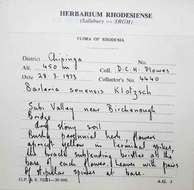 HERBARIUM RHODESIENSE
(Salisbury — SRGH)
FLORA OF RHODESIA
District Chipinga
Alt. 450 m Coll. D.C.H. Plowes
Date 29.3.1973 Collector's No. 4440
Barleria senensis Klotzsch
Sabi Valley near Birchenough
Bridge
stony soil
Bushy perennial herb, flowers
apricot yellow in terminal spikes,
bract subtending
base of each flower. Leaves with pairs
of stipular spines at base.